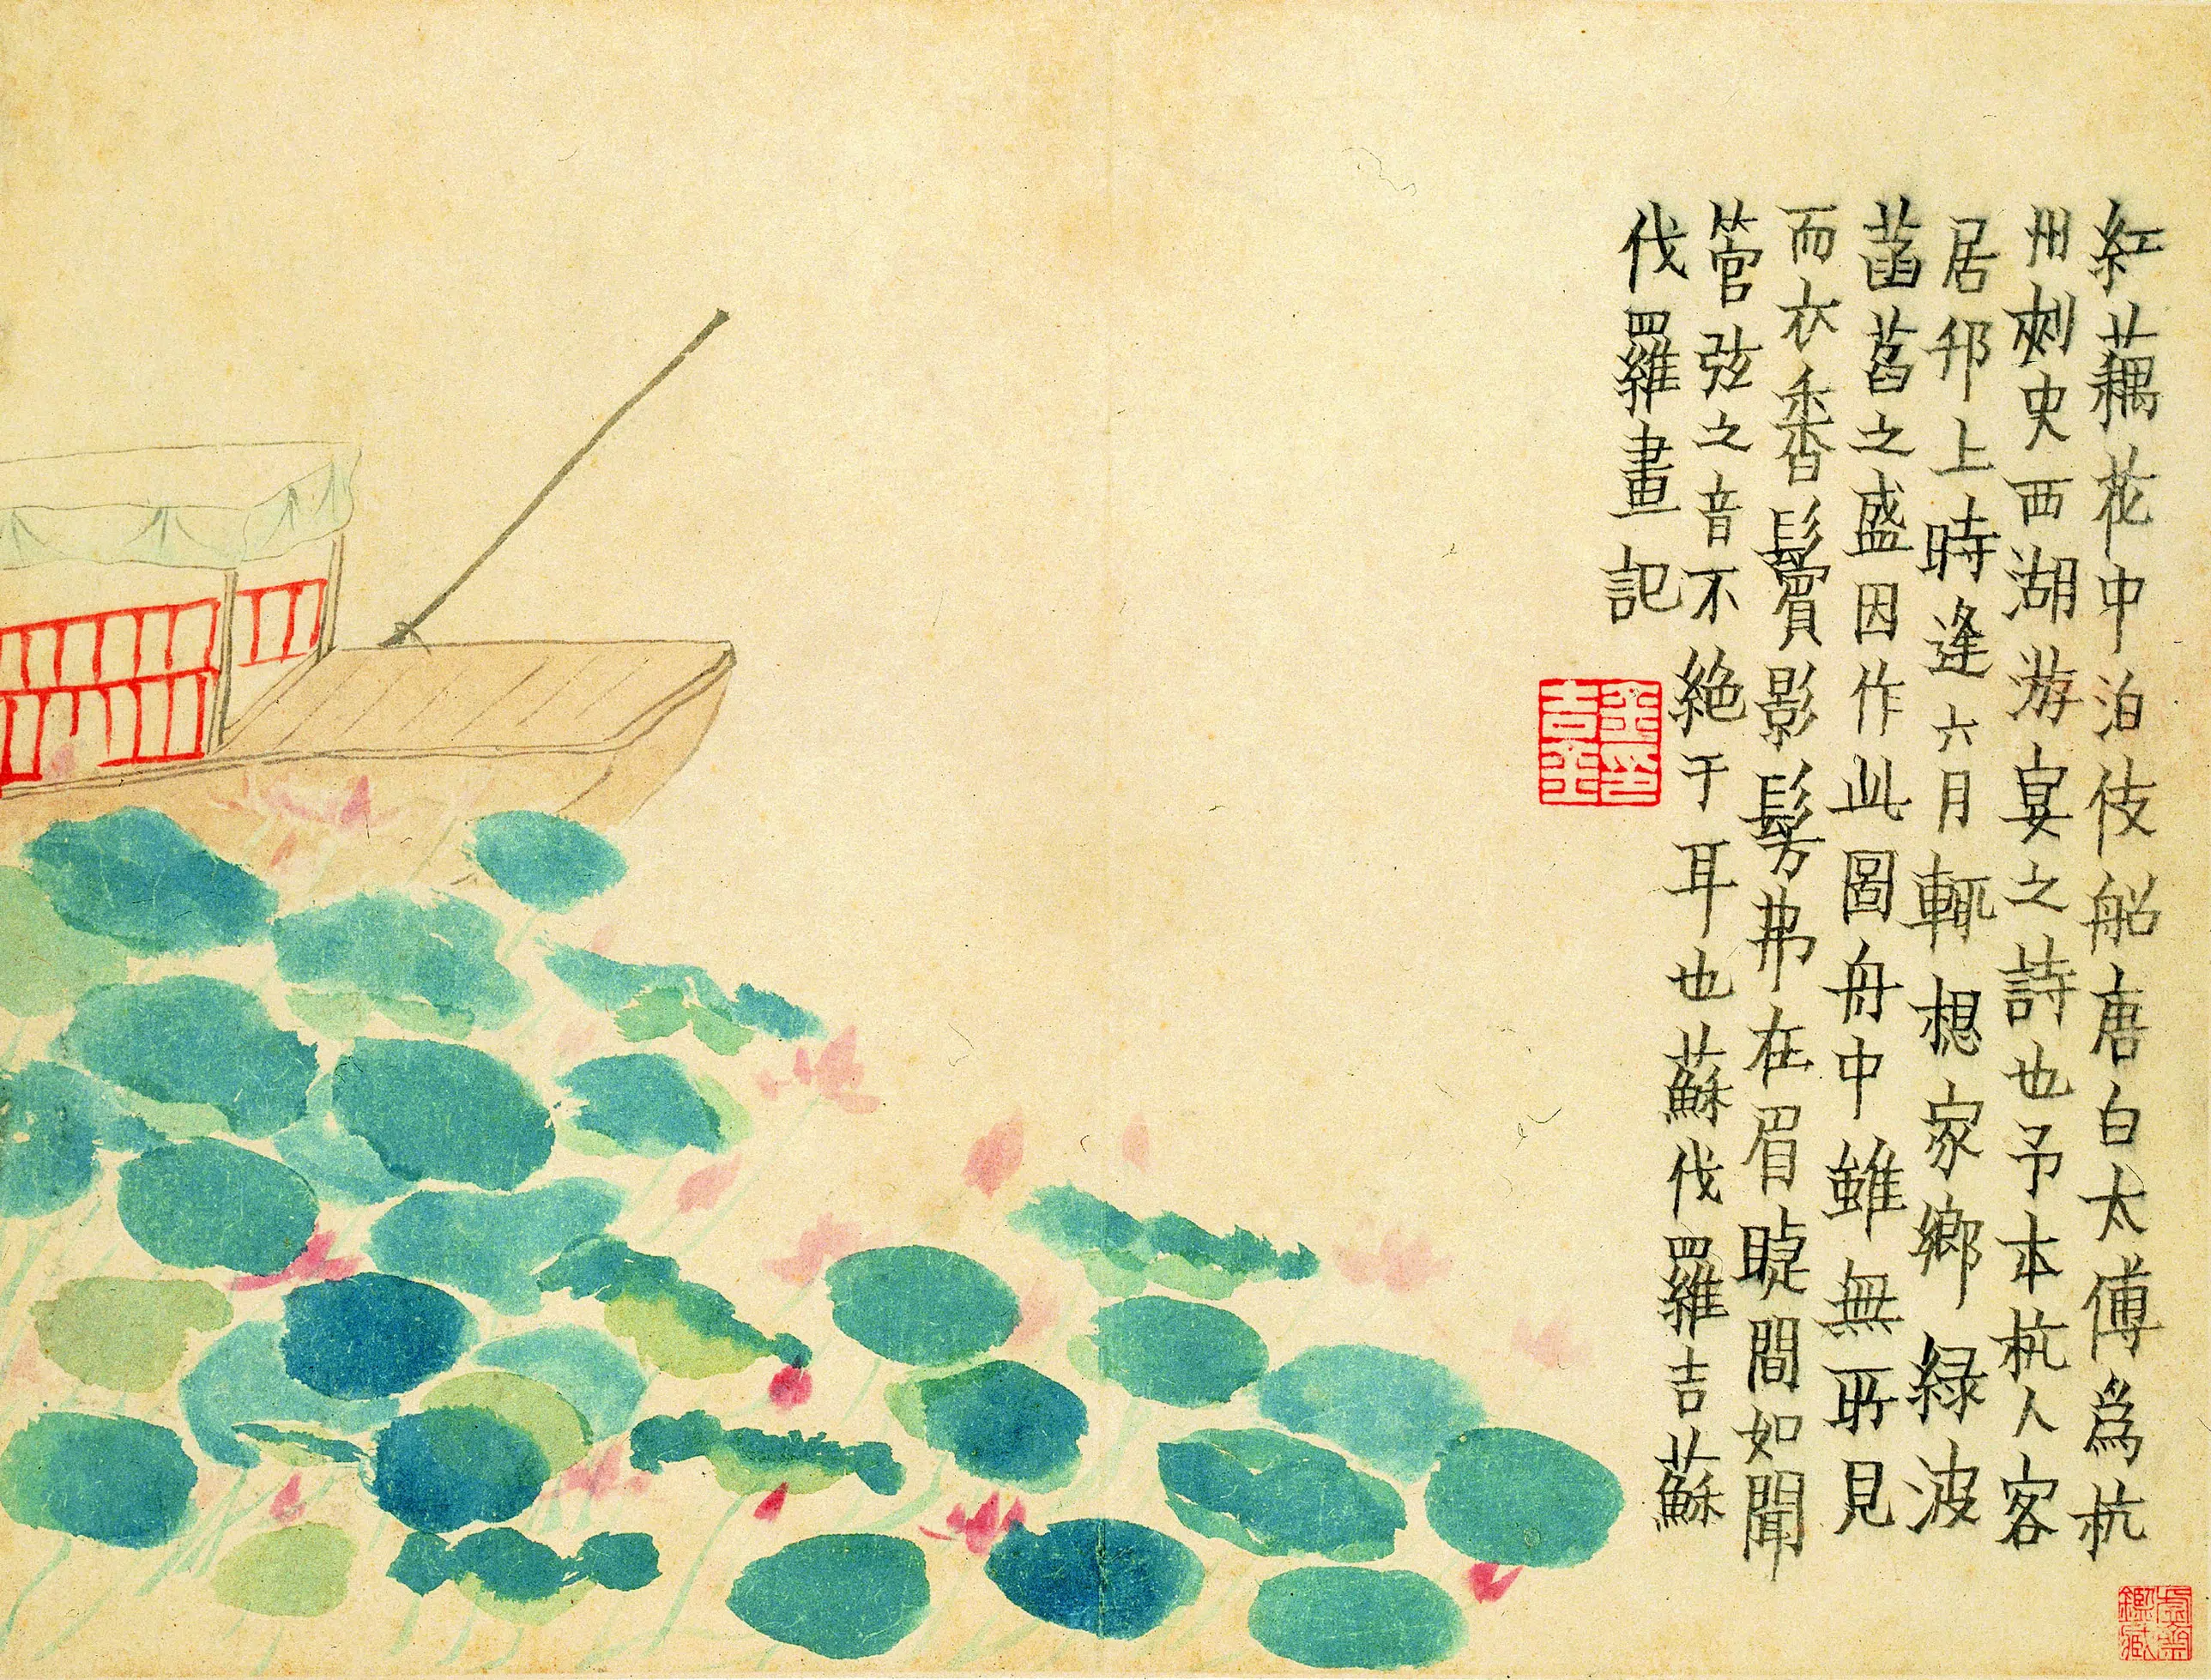 紅藕花中泊伎船唐白太傅爲杭
州刺史西湖游宴之詩也予本杭人客
居邗上時逢六月輒想家鄉緑波
菡萏之盛因作此圖舟中雖無所見
而衣香鬢影髣弗在眉睫間如聞
管弦之音不絶于耳也蘇伐羅吉蘇
伐羅畫記
金吉金印